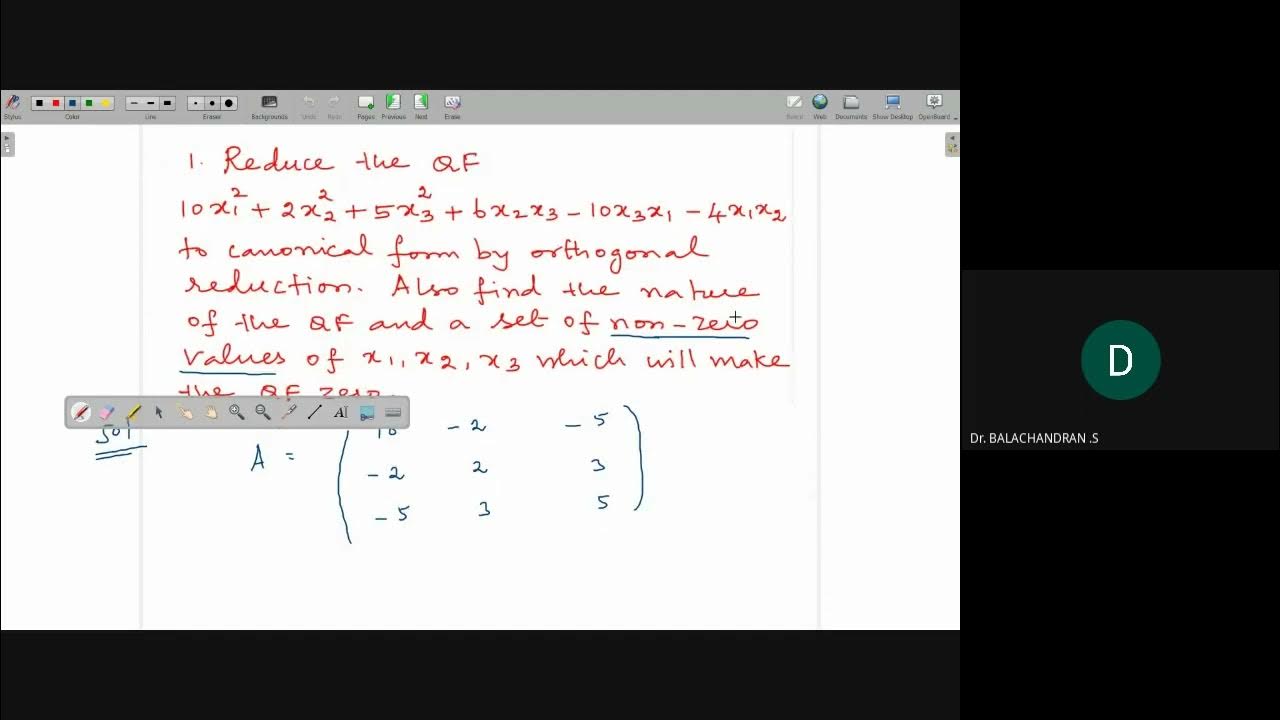 Stylus Color Line Eraser Backgrounds Undo Redo Pages Previous Next Erase Board Web Documents Show Desktop OpenBoard
1. Reduce the QF
10x₁² + 2x₂² + 5x₃² + 6x₂x₃ - 10x₃x₁ - 4x₁x₂
to canonical form by orthogonal
reduction. Also find the nature
of the QF and a set of non-zero
values of x₁, x₂, x₃ which will make
the QF zero.
Sol
A = ( 10 -2 -5
-2 2 3
-5 3 5 )
D
Dr. BALACHANDRAN .S